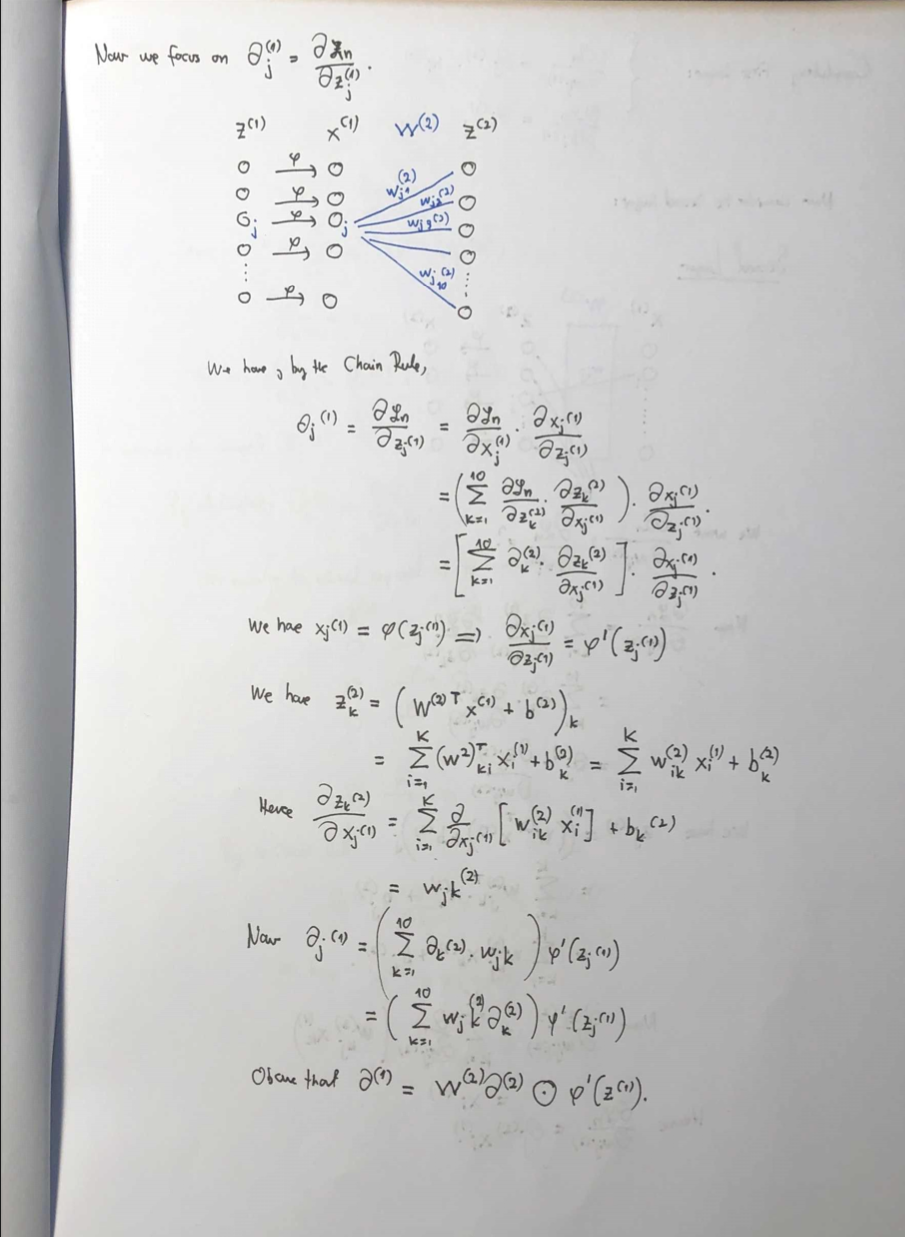 Now we focus on ∂_j^(1) = ∂ℒn/∂z_j^(1).
z^(1) x^(1) W^(2) z^(2)
φ w_j1^(2)
φ w_j2^(2)
j φ j w_j3^(2)
φ
... w_j10^(2) ...
φ
We have, by the Chain Rule,
∂_j^(1) = ∂ℒn/∂z_j^(1) = ∂ℒn/∂x_j^(1) · ∂x_j^(1)/∂z_j^(1)
= (∑_{k=1}^{10} ∂ℒn/∂z_k^(2) · ∂z_k^(2)/∂x_j^(1)) · ∂x_j^(1)/∂z_j^(1).
= [∑_{k=1}^{10} ∂_k^(2) · ∂z_k^(2)/∂x_j^(1)] · ∂x_j^(1)/∂z_j^(1).
We hae x_j^(1) = φ(z_j^(1)) => ∂x_j^(1)/∂z_j^(1) = φ'(z_j^(1))
We have z_k^(2) = (W^(2)T x^(1) + b^(2))_k
= ∑_{i=1}^{K} (w^2)^T_ki x_i^(1) + b_k^(2) = ∑_{i=1}^{K} w_ik^(2) x_i^(1) + b_k^(2)
Hence ∂z_k^(2)/∂x_j^(1) = ∑_{i=1}^{K} ∂/∂x_j^(1) [w_ik^(2) x_i^(1)] + b_k^(2)
= w_jk^(2)
Now ∂_j^(1) = (∑_{k=1}^{10} ∂_k^(2) · w_jk) φ'(z_j^(1))
= (∑_{k=1}^{10} w_jk^(2) ∂_k^(2)) φ'(z_j^(1))
that ∂^(1) = W^(2) ∂^(2) ⊙ φ'(z^(1)).